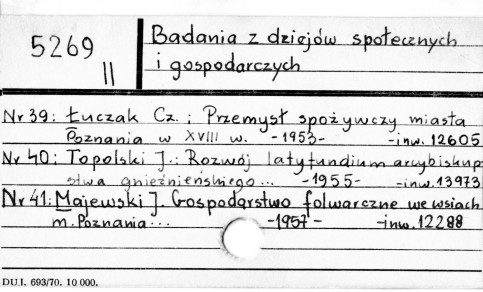 5269
II
Badania z dziejów społecznych
i gospodarczych
Nr 39: Łuczak Cz.; Przemysł spożywczy miasta
Poznania w XVIII w. -1953- -inw. 12605
Nr 40: Topolski J.: Rozwój latyfundium arcybiskup
stwa gnieźnieńskiego... -1955- -inw. 13973
Nr 41: Majewski J. Gospodarstwo folwarczne we wsiach
m. Poznania... -1957- -inw. 12288
DU.I. 693/70. 10 000.